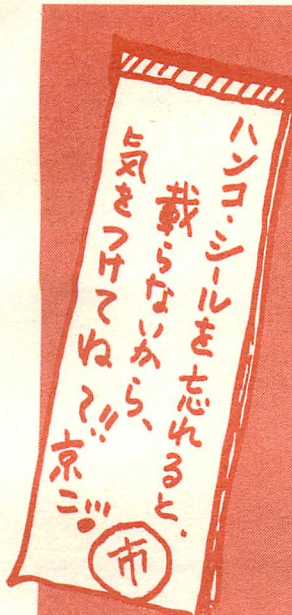 ハンコ・シールを忘れると、
載らないから、
気をつけてね?!! 京こ
市